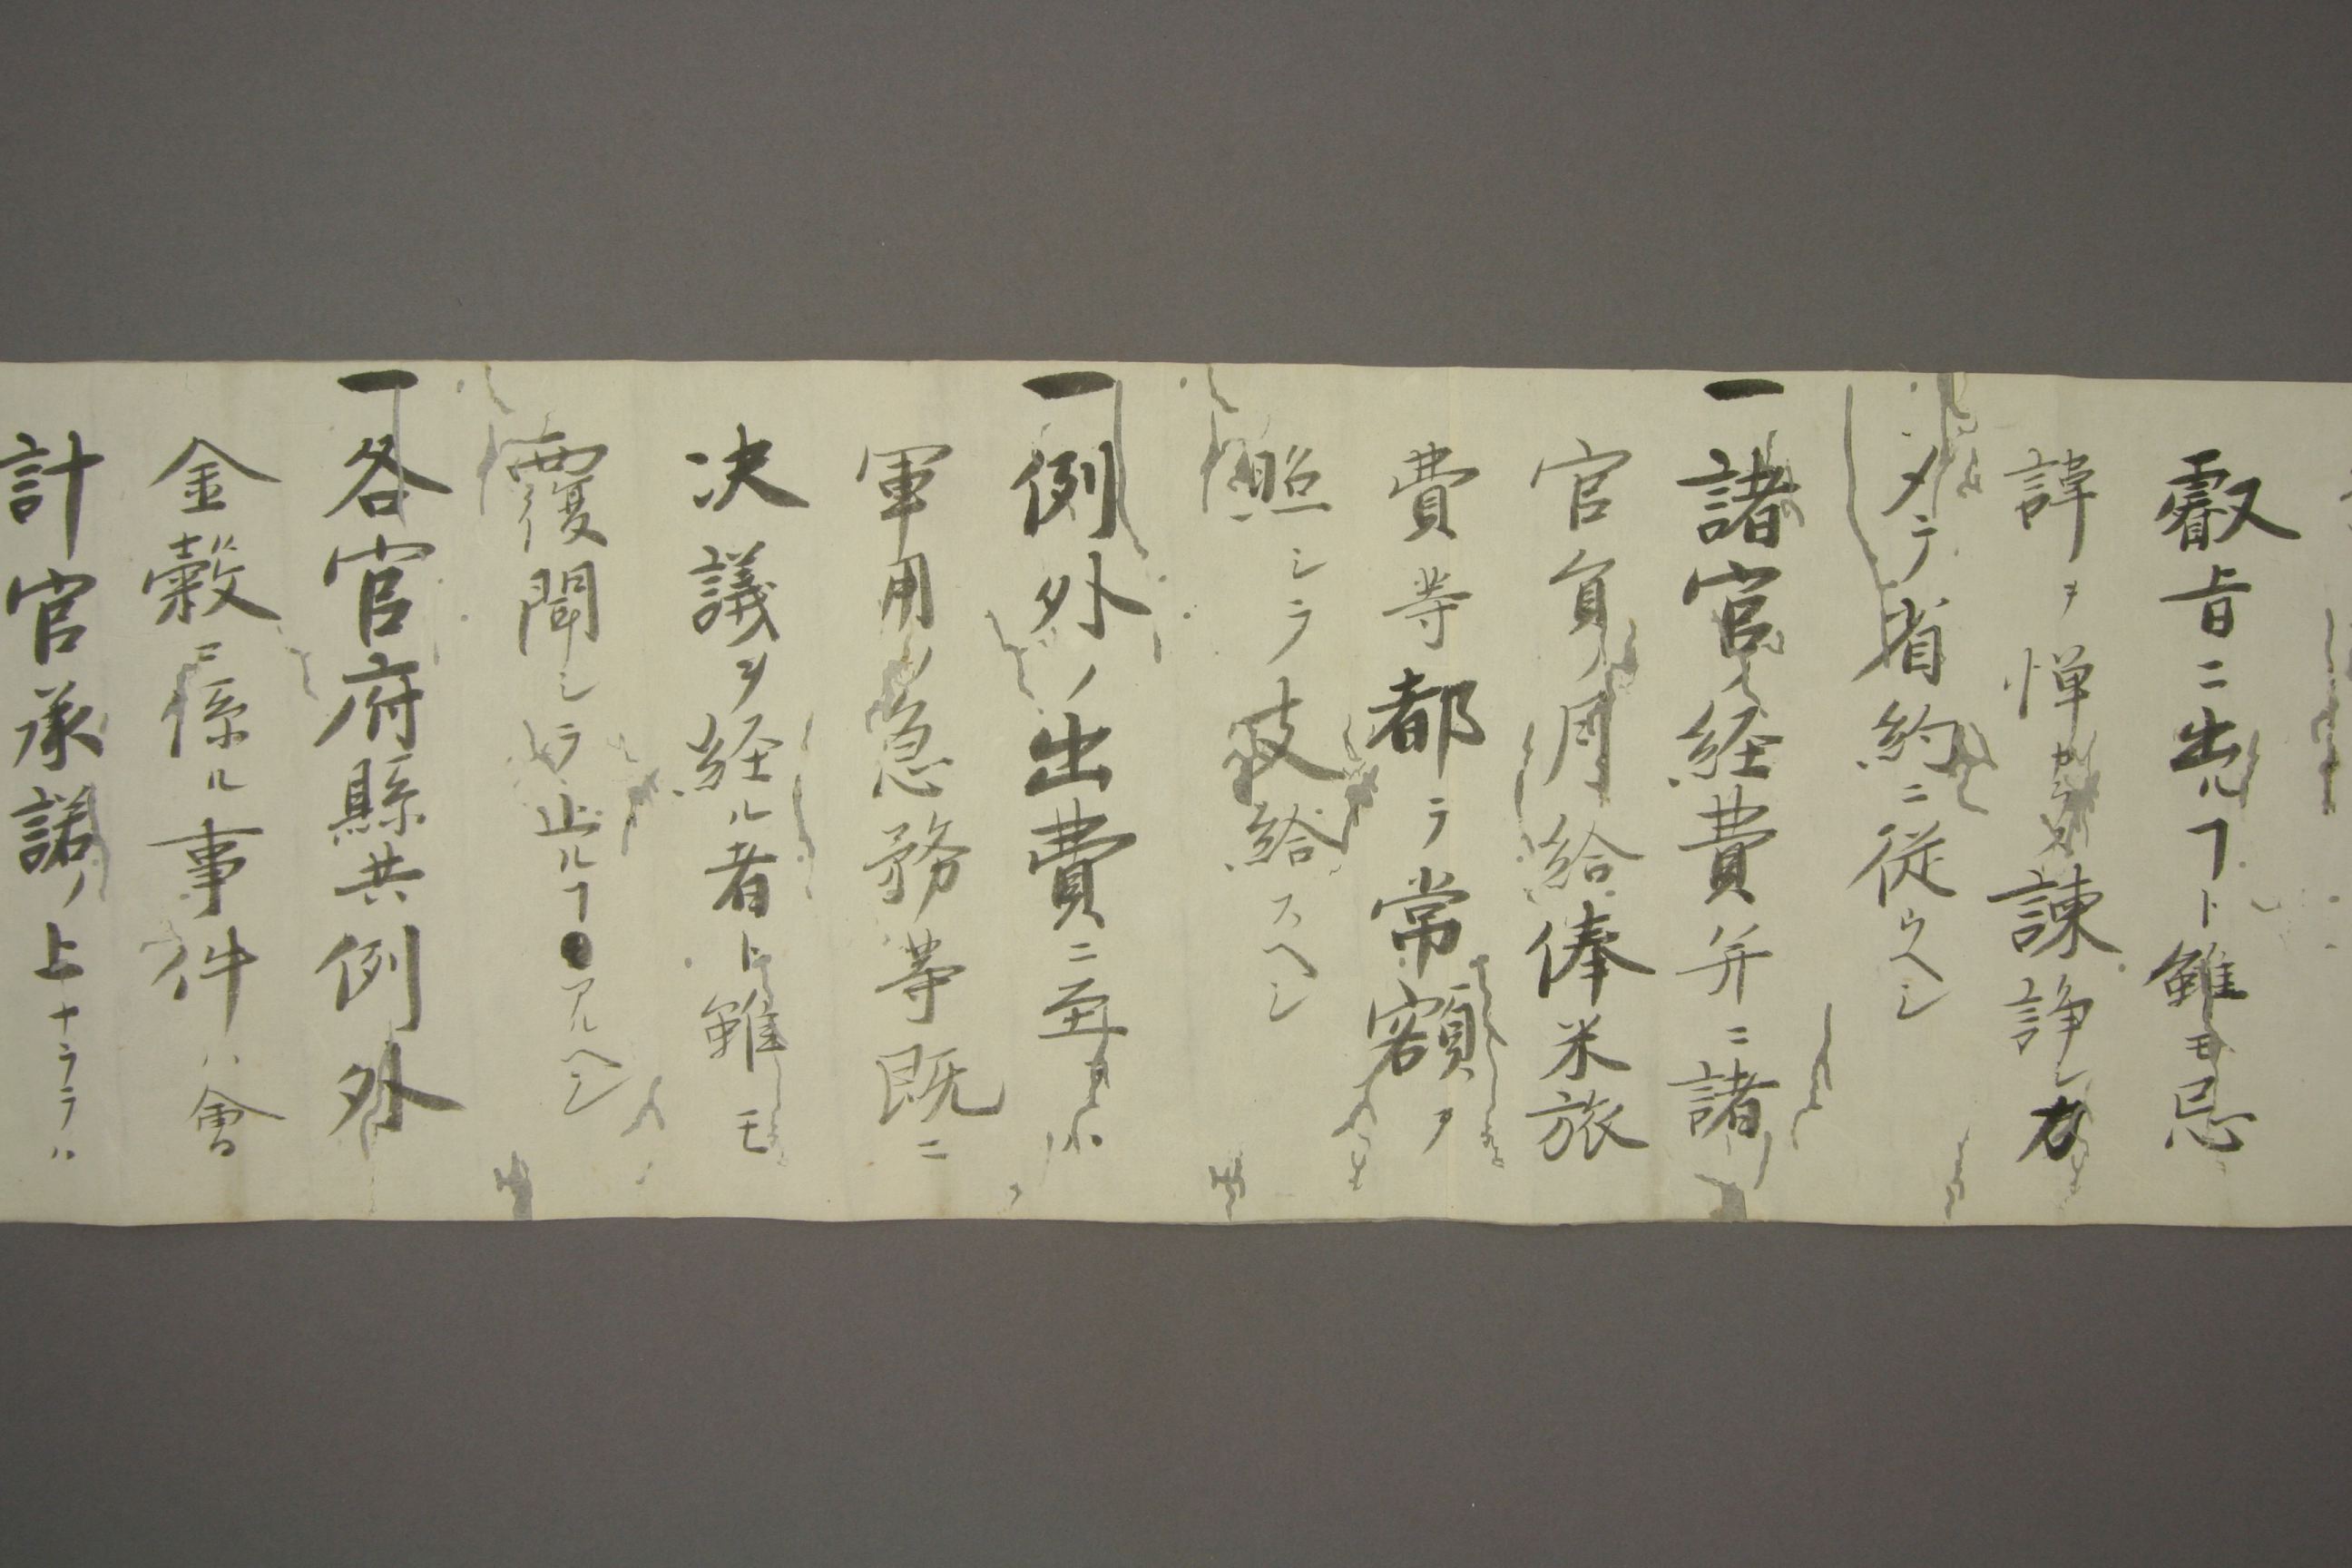 叡旨ニ出ルヿト雖モ忌
諱ヲ憚カラス諫諍シ力
メテ省約ニ従ウヘシ
一諸官ノ経費并ニ諸
官員ノ月給俸米旅
費等都テ常額ヲ
照シテ支給スヘシ
一例外ノ出費ニ至テハ
軍用ノ急務等既ニ
决議ヲ経ル者ト雖モ
覆聞シテ止ルヿアルヘシ
一各官府縣共例外
金穀ニ係ル事件ハ會
計官承諾ノ上ナラテハ